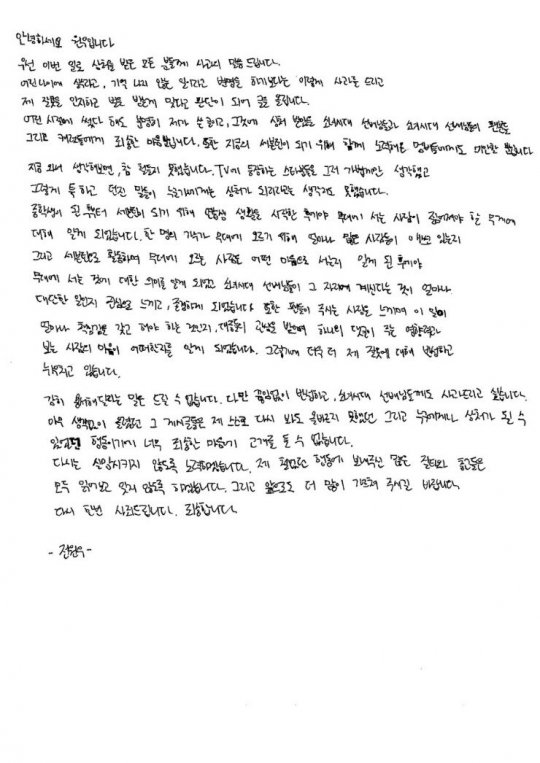 안녕하세요 원우입니다
우선 이번 일로 상처를 받은 모든 분들께 사과의 말씀 드립니다.
어린나이에 생각하고, 기억 나지 않는 일이라고 변명을 하기보다는 이렇게 사과를 드리고
제 잘못을 인지하고 벌로 받는게 맞다고 판단이 되어 글을 올립니다.
어떤 시절에 썼다 해도 분명히 제가 쓴 글이고, 그것에 상처 받았을 소녀시대 선배님들과 소녀시대 선배님들의 팬분들
그리고 캐럿들에게 죄송한 마음뿐입니다. 또한 지금의 세븐틴이 되기 위해 함께 노력해온 멤버들에게도 미안할 뿐입니다
지금 와서 생각해보면, 참 철들지 못했습니다. TV에 등장하는 스타분들을 그저 가볍게만 생각했고
그렇게 툭 하고 던진 말들이 누군가에게는 상처가 되리라고는 생각지도 못했습니다.
중학생이 된 후부터 세븐틴이 되기 위해 연습생 생활을 시작한 후에야 무대에 서는 사람이 짊어져야 할 무게에
대해 알게 되었습니다. 한 명의 가수가 무대에 오르기 위해 얼마나 많은 사람들이 애쓰고 있는지
그리고 세븐틴으로 활동하며 무대에 오르는 사람은 어떤 마음으로 서는지 알게 된 후에야
무대에 서는 것에 대한 의미를 알게 되었고 소녀시대 선배님들이 그 자리에 계신다는 것이 얼마나
대단한 일인지 진심으로 느끼고, 존경하게 되었습니다 또한 팬들이 주시는 사랑을 느끼며 이 일이
얼마나 책임감을 갖고 해야 하는 것인지, 대중들의 관심을 받으며 하나의 댓글이 주는 영향력과
보는 사람의 마음이 어떠한지를 알게 되었습니다. 그렇기에 더욱 더 제 잘못에 대해 반성하고
뉘우치고 있습니다.
감히 용서해달라는 말은 드릴 수 없습니다. 다만 끊임없이 반성하고, 소녀시대 선배님들께도 사과드리고 싶습니다.
아무 생각없이 올렸었던 그 게시글들은 제 스스로 다시 봐도 올바르지 못했던 그리고 누군에게나 상처가 될 수
있었던 행동이기에 너무 죄송한 마음에 고개를 들 수 없습니다.
다시는 실망시키지 않도록 노력하겠습니다. 제 철없던 행동에 보내주신 많은 질타와 충고들은
모두 읽어보고 잊지 않도록 하겠습니다. 그리고 앞으로도 더 많이 가르쳐 주시길 바랍니다.
다시 한번 사죄드립니다. 죄송합니다.
- 전원우 -